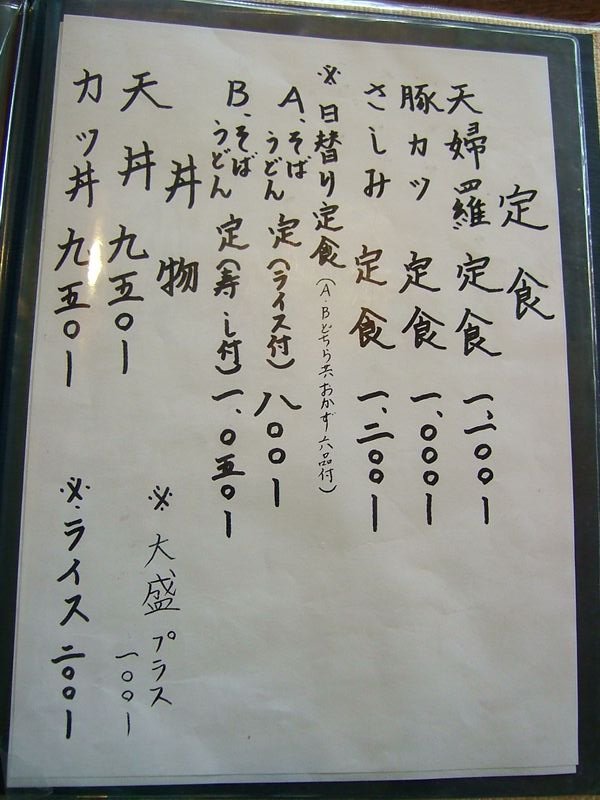 定食
天婦羅定食 一、二〇〇ー
豚カツ定食 一、〇〇〇ー
さしみ定食 一、二〇〇ー
※日替り定食(A・Bどちら共おかず六品付)
A、そばうどん定(ライス付)八〇〇ー
B、そばうどん定(寿し付)一、〇五〇ー
丼物
天丼 九五〇ー
カツ丼 九五〇ー
※大盛プラス
一〇〇ー
※ライス 二〇〇ー